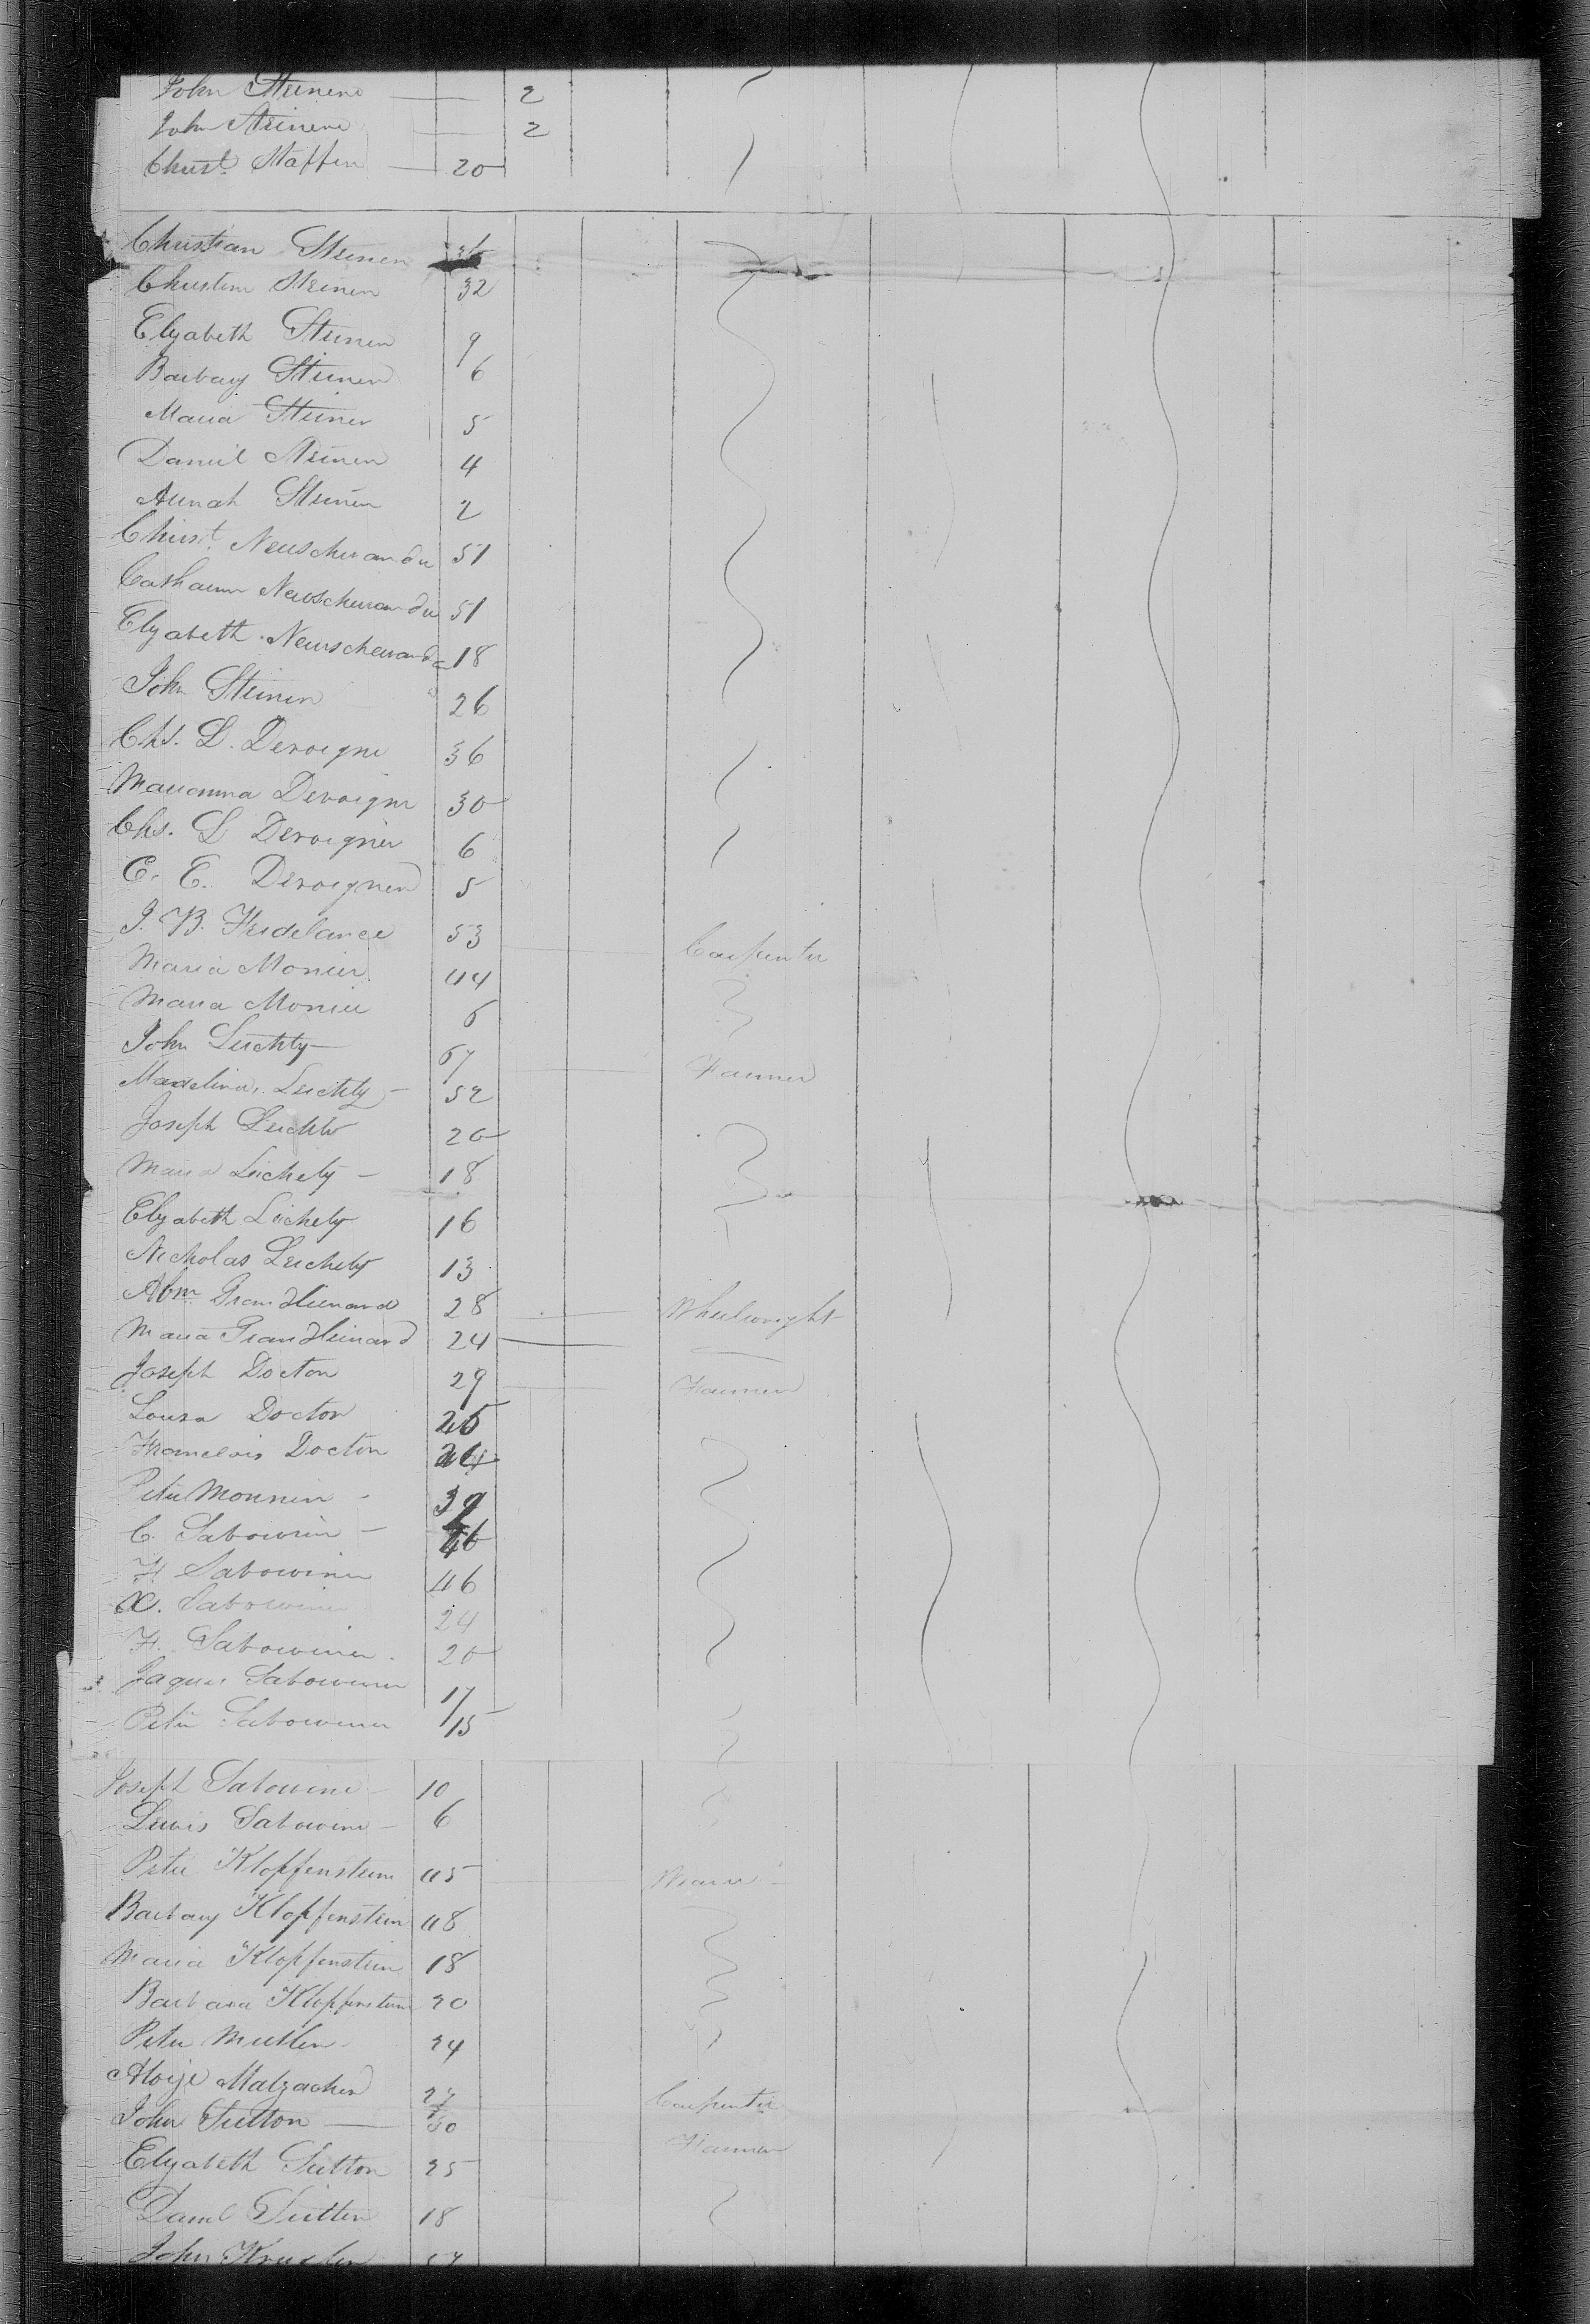 John Steinen 2
John Steinen 2
Christ. Staffen 20
Christian Steinen
Christine Steinen 32
Elyabeth Steinen 9
Barbary Steinen 6
Maria Steiner 5
Daniel Steinen 4
Annah Steinen 2
Christ. Neuschwander 51
Catharine Neuschwander 51
Elyabeth Neuschwander 18
John Steinen 26
Chs. L. Devoigne 36
Marianna Devoigne 30
Chs. L Devoigner 6
C. E. Devoignen 5
J. B. Fridelance 53 Carpenter
Maria Monier 44
Maria Monier 6
John Leichty 67 Farmer
Madelina Leichty 52
Joseph Leichty 20
Maria Leichety 18
Elyabeth Leichety 16
Nicholas Leichety 13
Abm Grandhienard 28 Wheelwright
Maria Grandhienard 24
Joseph Docton 29 Farmer
Louza Docton 25
Francois Docton 24
Peter Monnin 39
C. Sabourin 46
F Sabowiner 46
X. Sabowiner 24
F. Sabowiner 20
Jaques Sabowiner 17
Peter Sabowiner 15
Joseph Sabowine 10
Lewis Sabowine 6
Peter Klopfenstein 45 Weaver
Barbary Klopfenstein 48
Maria Klopfenstein 18
Barbara Klopfenstein 20
Peter Mutlen 24
Aloije Malzacher 27 Carpenter
John Sutton 30 Farmer
Elyabeth Sutton 25
Daml Sutten 18
John